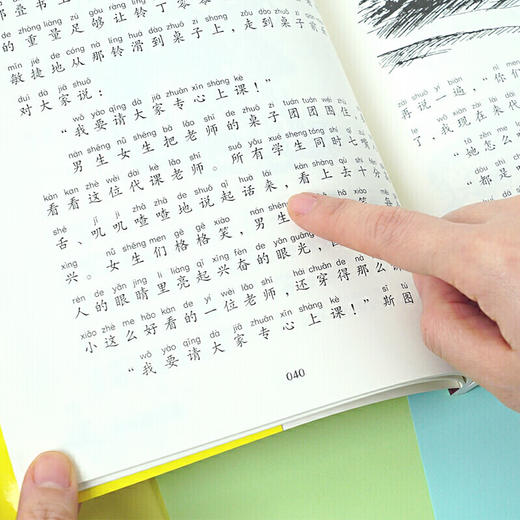 de zhòng liàng zú gòu ràng líng dīng
的重量足够让铃丁零零
mǐn jié de cóng nà líng huá dào zhuō zi shàng zǒu dào zhuō zi qián
敏捷地从那铃滑到桌子上，走到桌子前
duì dà jiā shuō
对大家说：
wǒ yào qǐng dà jiā zhuān xīn shàng kè
“我要请大家专心上课！”
nán shēng nǚ shēng bǎ lǎo shī de zhuō zi tuán tuán wéi zhù
男生女生把老师的桌子团团围住，
kàn kan zhè wèi dài kè lǎo shī suǒ yǒu xué sheng tóng shí qī
看看这位代课老师。所有学生同时七嘴
shé jī jī zhā zhā de shuō qǐ huà lái kàn shàng qù shí fēn
舌、叽叽喳喳地说起话来，看上去十分
xìng nǚ shēng men gē gē xiào nán shēng
兴。女生们格格笑，男生
rén de yǎn jīng li liàng qǐ xīng fèn de yǎn guāng
人的眼睛里亮起兴奋的眼光，
xiǎo zhè me hǎo kàn de yí wèi lǎo shī hái chuān de nà me
小这么好看的一位老师，还穿得那么
wǒ yào qǐng dà jiā zhuān xīn shàng kè sī tú
“我要请大家专心上课！”斯图
040
zài shuō yí biàn nǐ men
再说一遍，“你们
了，我现在来代
tā zěn me
“她怎么
dōu shì
“都是